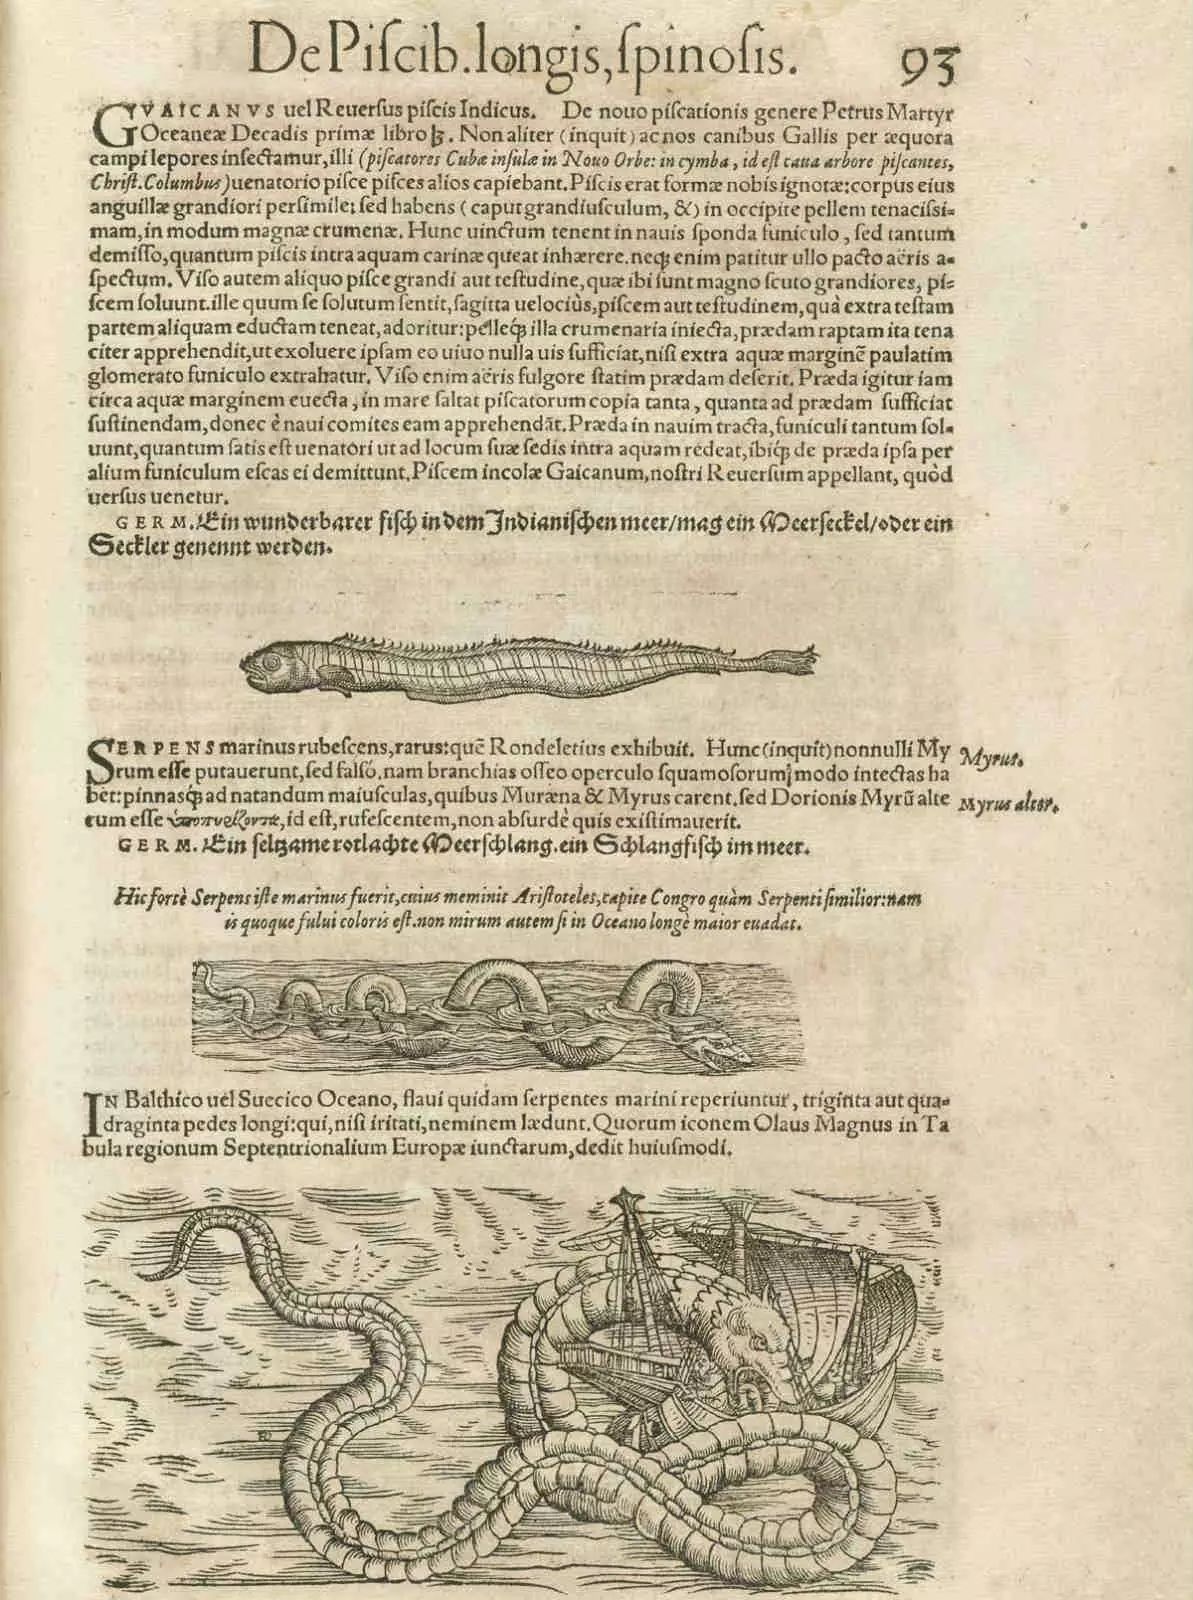 De Piſcib. longis, ſpinoſis. 93
GVAICANVS uel Reuerſus piſcis Indicus. De nouo piſcationis genere Petrus Martyr
Oceaneæ Decadis primæ libro Non aliter (inquit) ac nos canibus Gallis per æquora
campi lepores inſectamur, illi (piſcatores Cubæ inſulæ in Nouo Orbe: in cymba, id eſt caua arbore piſcantes,
Chriſt. Columbus) uenatorio piſce piſces alios capiebant. Piſcis erat formæ nobis ignotæ: corpus eius
anguillæ grandiori perſimile: ſed habens (caput grandiuſculum, &) in occipite pellem tenaciſsi=
mam, in modum magnæ crumenæ. Hunc uinctum tenent in nauis ſponda funiculo, ſed tantum
demiſſo, quantum piſcis intra aquam carinæ queat inhærere. neqꝫ enim patitur ullo pacto aëris a=
ſpectum. Viſo autem aliquo piſce grandi aut teſtudine, quæ ibi ſunt magno ſcuto grandiores, pi=
ſcem ſoluunt. ille quum ſe ſolutum ſentit, ſagitta uelociùs, piſcem aut teſtudinem, quà extra teſtam
partem aliquam eductam teneat, adoritur: pelleqꝫ illa crumenaria iniecta, prædam raptam ita tena
citer apprehendit, ut exoluere ipſam eo uiuo nulla uis ſufficiat, niſi extra aquæ marginẽ paulatim
glomerato funiculo extrahatur. Viſo enim aëris fulgore ſtatim prædam deſerit. Præda igitur iam
circa aquæ marginem euecta, in mare ſaltat piſcatorum copia tanta, quanta ad prædam ſufficiat
ſuſtinendam, donec è naui comites eam apprehendãt. Præda in nauim tracta, funiculi tantum ſol=
uunt, quantum ſatis eſt uenatori ut ad locum ſuæ ſedis intra aquam redeat, ibiqꝫ de præda ipſa per
alium funiculum eſcas ei demittunt. Piſcem incolæ Gaicanum, noſtri Reuerſum appellant, quòd
uerſus uenetur.
GERM. Ein wunderbarer fiſch in dem Indianiſchen meer/mag ein Meerſeckel/oder ein
Seckler genennt werden.
SERPENS marinus rubeſcens, rarus: quẽ Rondeletius exhibuit. Hunc (inquit) nonnulli My
rum eſſe putauerunt, ſed falſò. nam branchias oſſeo operculo ſquamoſorum modo intectas ha
bet: pinnasqꝫ ad natandum maiuſculas, quibus Muræna & Myrus carent. ſed Dorionis Myrũ alte
rum eſſe id eſt, rufeſcentem, non abſurdè quis exiſtimauerit.
Myrus.
Myrus alter.
GERM. Ein ſeltzame rotlachte Meerſchlang. ein Schlangfiſch im meer.
Hic fortè Serpens iſte marinus fuerit, cuius meminit Ariſtoteles, capite Congro quàm Serpenti ſimilior: nam
is quoque fului coloris eſt. non mirum autem ſi in Oceano longè maior euadat.
IN Balthico uel Suecico Oceano, flaui quidam ſerpentes marini reperiuntur, triginta aut qua=
draginta pedes longi: qui, niſi iritati, neminem lædunt. Quorum iconem Olaus Magnus in Ta
bula regionum Septentrionalium Europæ iunctarum, dedit huiuſmodi.